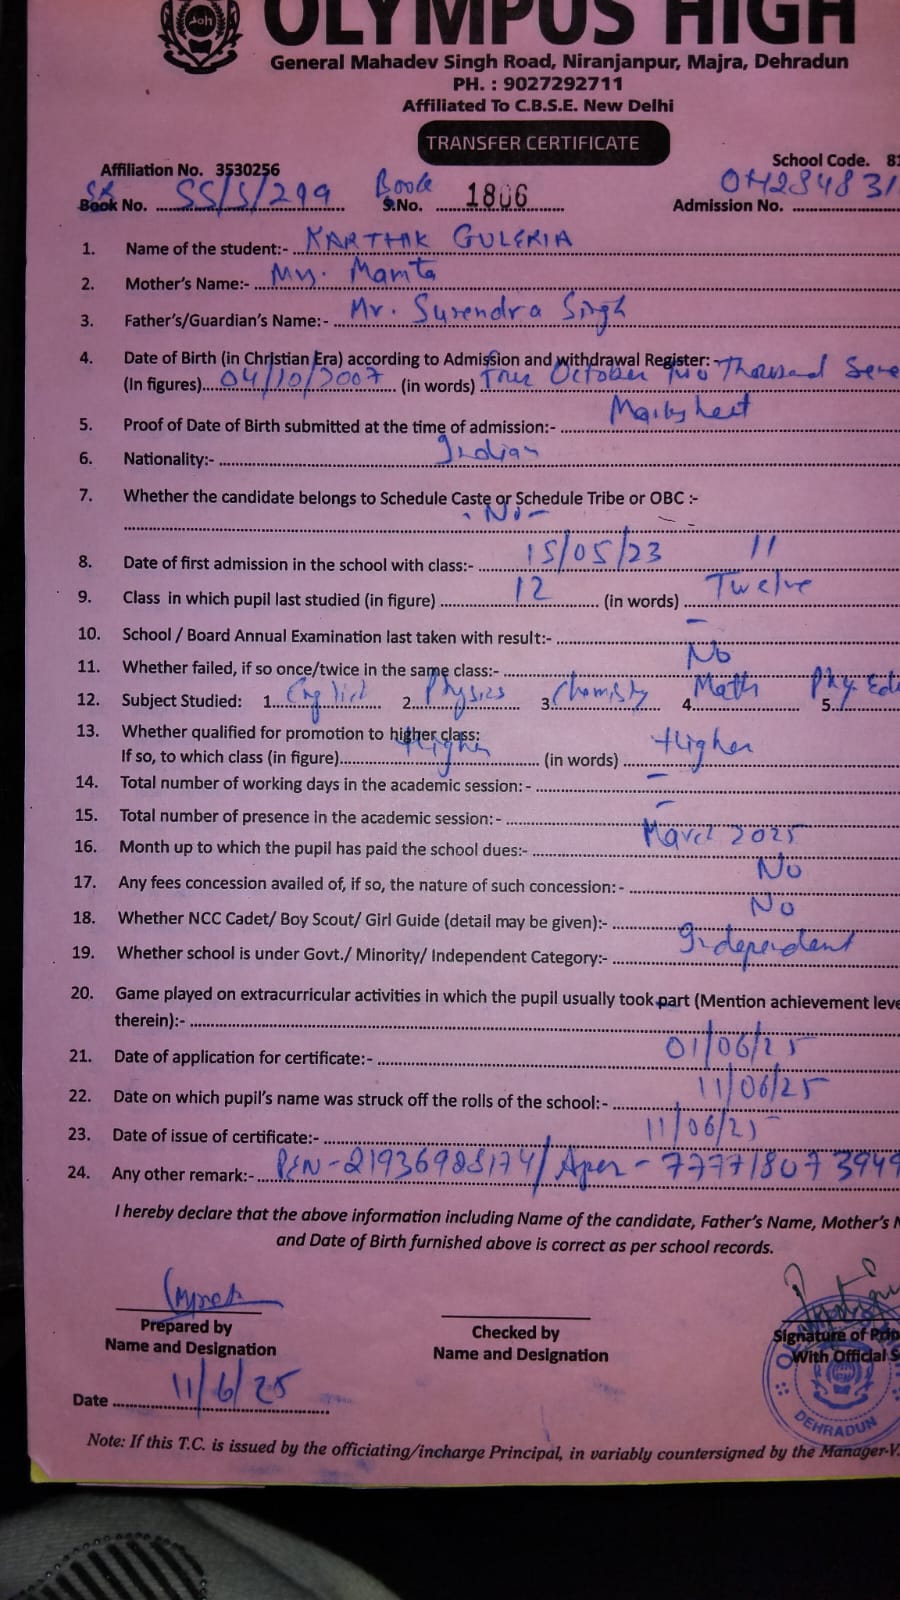 OLYMPUS HIGH
General Mahadev Singh Road, Niranjanpur, Majra, Dehradun
PH. : 9027292711
Affiliated To C.B.S.E. New Delhi
TRANSFER CERTIFICATE
Affiliation No. 3530256
School Code. 81
SR Book No. SS/S/299 Book S.No. 1806 Admission No. OH284831
1. Name of the student:- KARTHIK GULERIA
2. Mother's Name:- Mrs. Mamta
3. Father's/Guardian's Name:- Mr. Surendra Singh
4. Date of Birth (in Christian Era) according to Admission and withdrawal Register:-
(In figures) 04/10/2007 (in words) October Two Thousand Seve
5. Proof of Date of Birth submitted at the time of admission:- Marksheet
6. Nationality:- Indian
7. Whether the candidate belongs to Schedule Caste or Schedule Tribe or OBC :-
- No -
8. Date of first admission in the school with class:- 15/05/23 11
9. Class in which pupil last studied (in figure) 12 (in words) Twelve
10. School / Board Annual Examination last taken with result:- -
11. Whether failed, if so once/twice in the same class:- No
12. Subject Studied: 1. English 2. Physics 3. Chemistry 4. Math 5. Phy. Edu
13. Whether qualified for promotion to higher class:
If so, to which class (in figure) Higher (in words) Higher
14. Total number of working days in the academic session: - -
15. Total number of presence in the academic session: - -
16. Month up to which the pupil has paid the school dues:- March 2025
17. Any fees concession availed of, if so, the nature of such concession: - No
18. Whether NCC Cadet/ Boy Scout/ Girl Guide (detail may be given):- No
19. Whether school is under Govt./ Minority/ Independent Category:- Independent
20. Game played on extracurricular activities in which the pupil usually took part (Mention achievement leve
therein):-
21. Date of application for certificate:- 01/06/25
22. Date on which pupil's name was struck off the rolls of the school:- 11/06/25
23. Date of issue of certificate:- 11/06/25
24. Any other remark:- PEN-21936988174/ Aper - 777718073949
I hereby declare that the above information including Name of the candidate, Father's Name, Mother's N
and Date of Birth furnished above is correct as per school records.
Prepared by
Name and Designation
Checked by
Name and Designation
Signature of Prin
With Official S
DEHRADUN
Date 11/6/25
Note: If this T.C. is issued by the officiating/incharge Principal, in variably countersigned by the Manager-V.